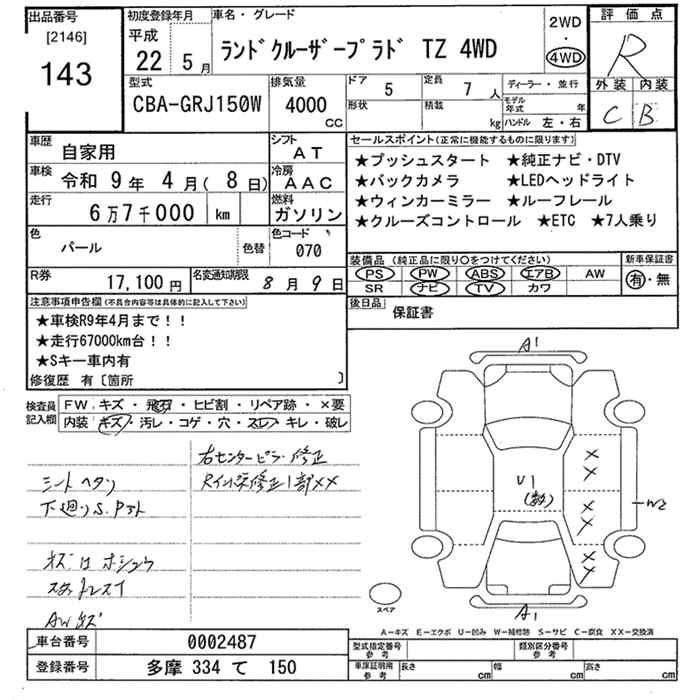 出品番号
[2146]
143
初度登録年月
平成
22 5月
車名・グレード
ランドクルーザープラド TZ 4WD
2WD
・
4WD
評価点
R
外装 内装
C B
型式
CBA-GRJ150W
排気量
4000
CC
ドア
5
定員
7 人
形状
積載
kg
ディーラー・並行
モデル年式
年
ハンドル 左・右
車歴
自家用
シフト
AT
車検
令和 9年 4月(8日)
冷房
AAC
走行
6万7千000 km
燃料
ガソリン
色
パール
色替
色コード
070
R券
17,100円
名変通知期限
8月9日
セールスポイント(正常に機能するものに限ります)
★プッシュスタート ★純正ナビ・DTV
★バックカメラ ★LEDヘッドライト
★ウィンカーミラー ★ルーフレール
★クルーズコントロール ★ETC ★7人乗り
装備品 (純正品に限り○をつけてください)
PS PW ABS エアB AW
SR ナビ TV カワ
新車保証書
有・無
後日品
保証書
注意事項申告欄(不具合内容等は具体的に記入して下さい)
★車検R9年4月まで！！
★走行67000km台！！
★Sキー車内有
修復歴 有〔箇所 〕
検査員
記入欄
FW キズ・飛石・ヒビ割・リペア跡・×要
内装 キズ・汚レ・コゲ・穴・スレ・キレ・破レ
右センターピラー修正
シートヘタリ
下廻りS.
スタットレスタイ
AWキズ
A1
U1
W2
××
××
××
A1
スペア
A－キズ E－エクボ U－凹み W－補修跡 S－サビ C－腐食 XX－交換済
車台番号
0002487
登録番号
多摩 334 て 150
型式指定番号
参考
類別区分番号
参考
車庫証明用
参考
長さ cm
幅 cm
高さ cm